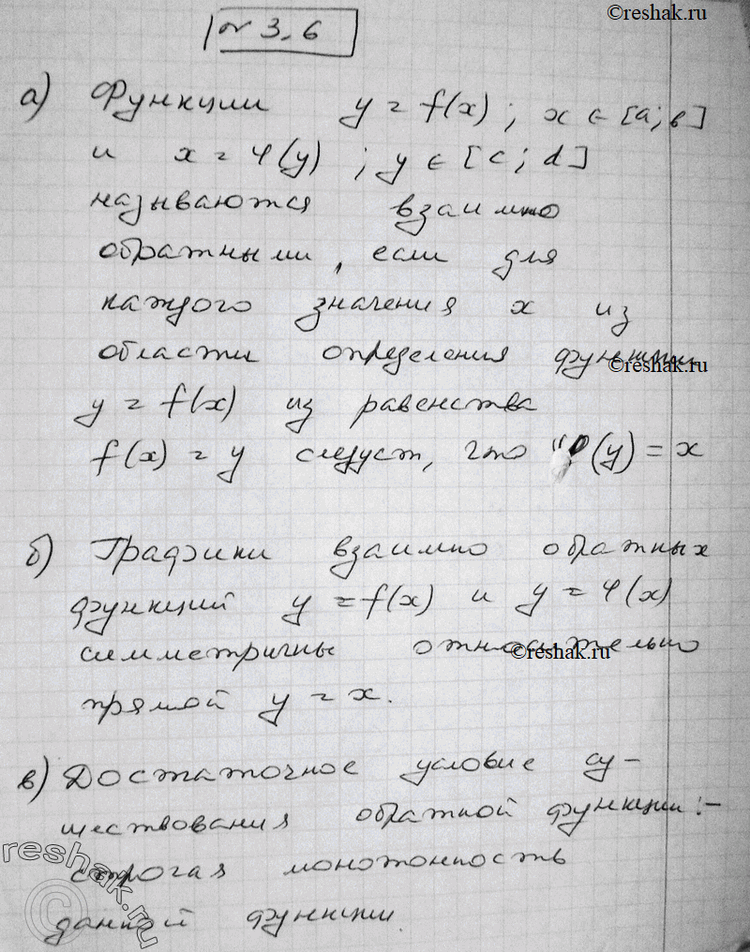 ©reshak.ru
№ 3.6
а) Функции y = f(x); x ∈ [a; в]
и x = φ(y); y ∈ [c; d]
называются взаимно
обратными, если для
каждого значения x из
области определения функции
©reshak.ru
y = f(x) из равенства
f(x) = y следует, что φ(y) = x
б) Графики взаимно обратных
функций y = f(x) и y = φ(x)
симметричны относительно
©reshak.ru
прямой y = x.
в) Достаточное условие су-
ществования обратной функции: -
строгая монотонность
данной функции.
reshak.ru
©